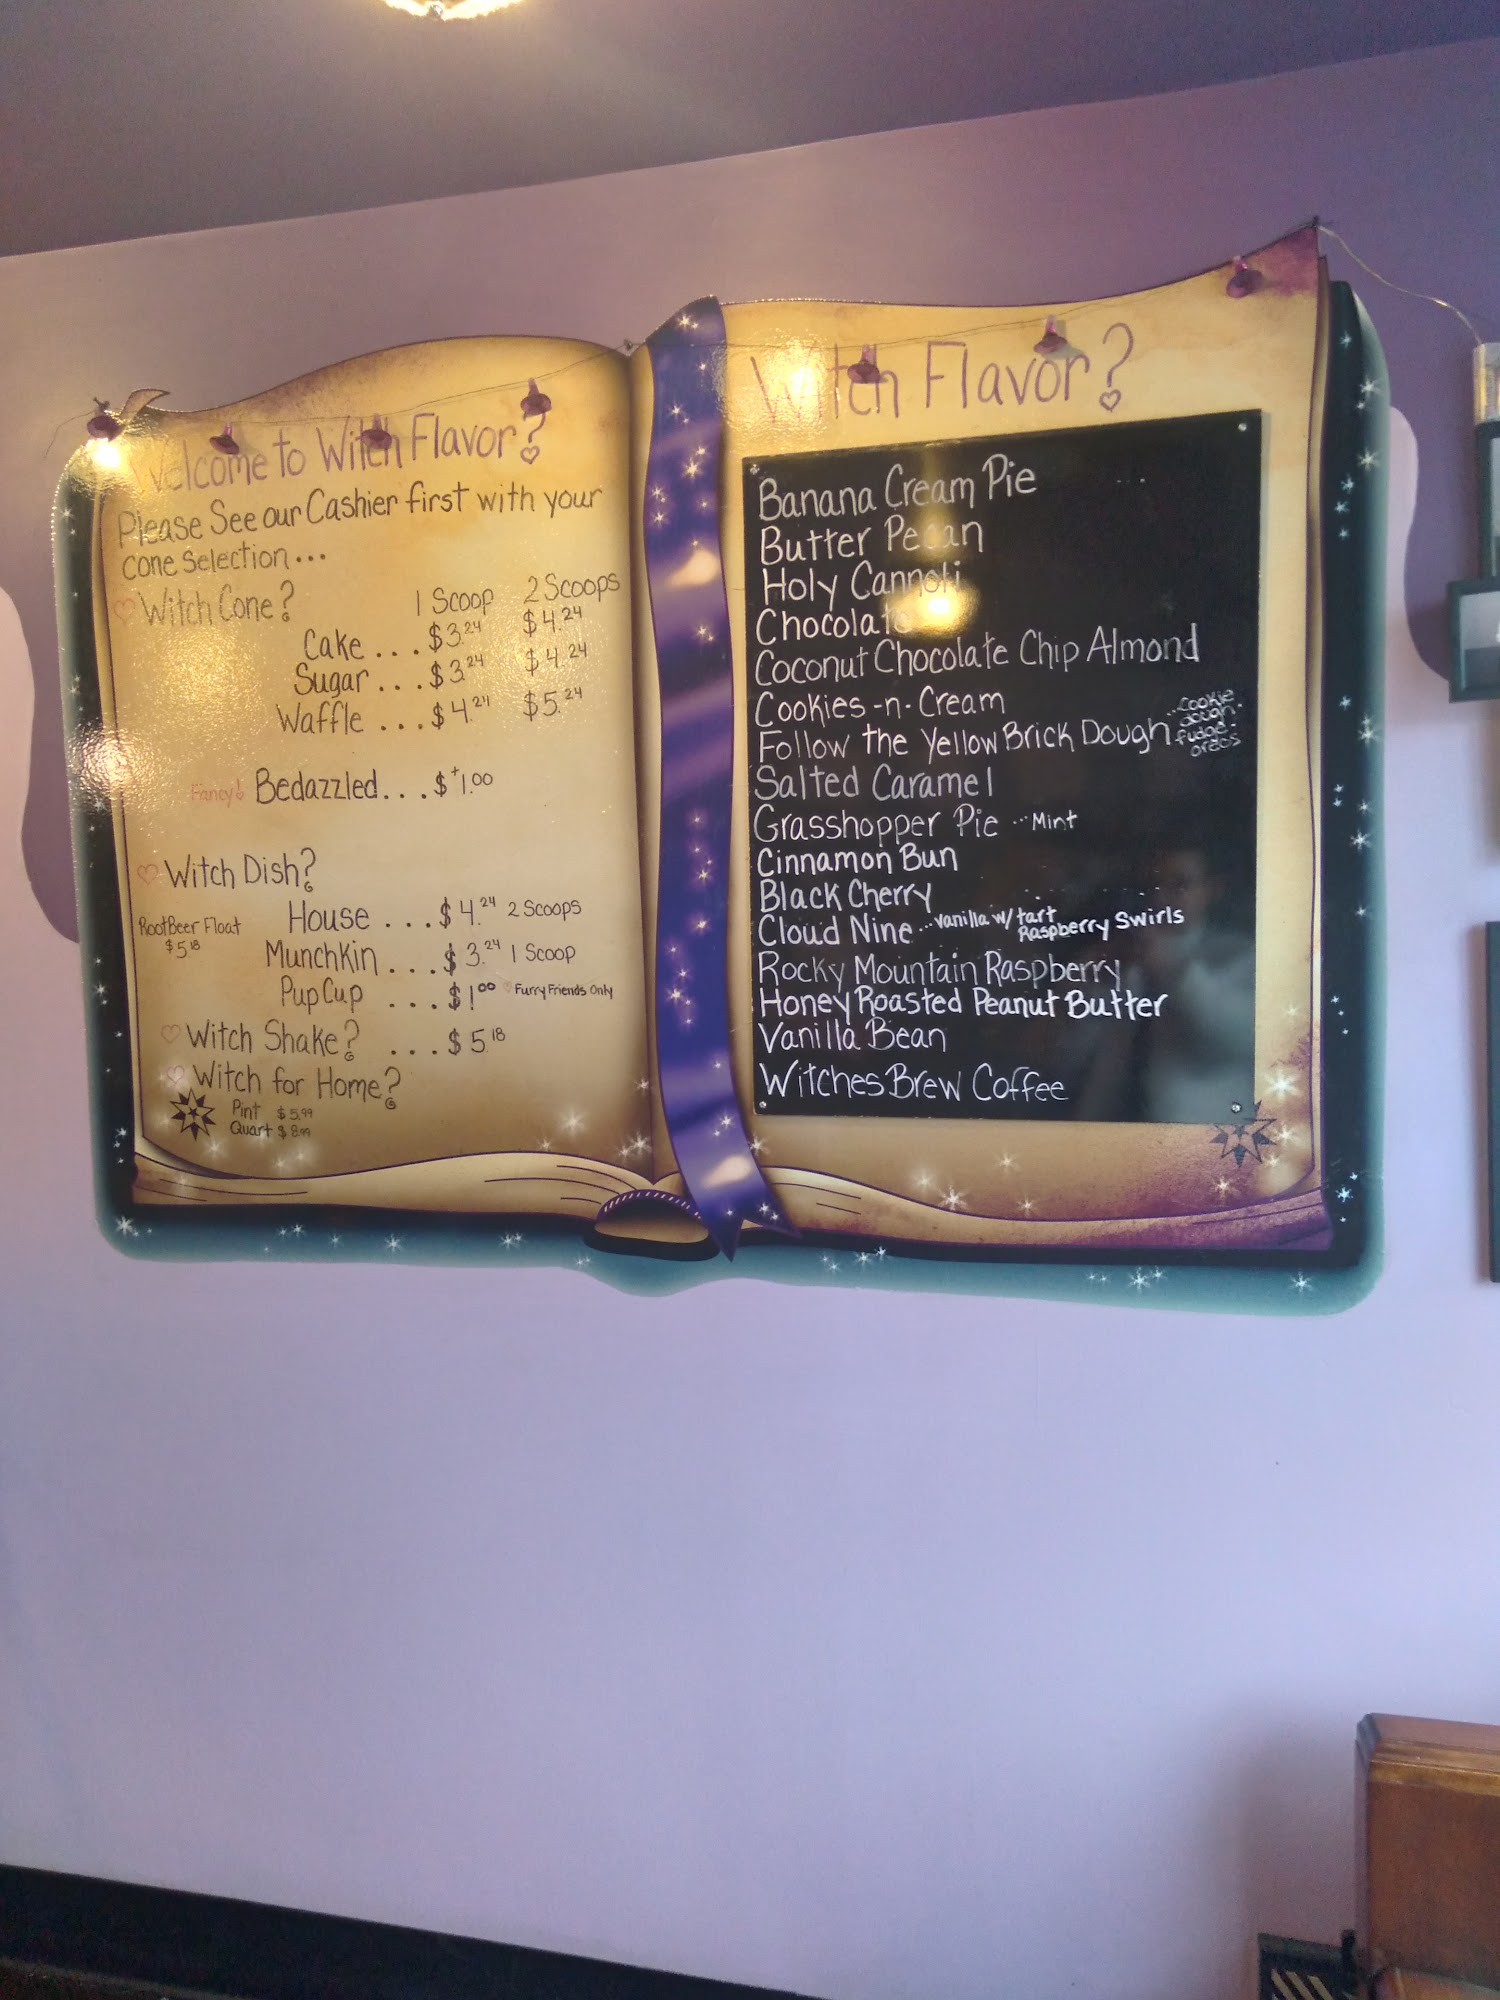 Welcome to Witch Flavor?
Please See our Cashier first with your
cone selection...
Witch Cone? 1 Scoop 2 Scoops
Cake ... $3.24 $4.24
Sugar ... $3.24 $4.24
Waffle ... $4.24 $5.24
Fancy! Bedazzled... $+1.00
Witch Dish?
House ... $4.24 2 Scoops
Root Beer Float
$5.18
Munchkin ... $3.24 1 Scoop
Pup Cup ... $1.00 Furry Friends Only
Witch Shake? ... $5.18
Witch for Home?
Pint $5.99
Quart $8.99
Witch Flavor?
Banana Cream Pie
Butter Pecan
Holy Cannoli
Chocolate
Coconut Chocolate Chip Almond
Cookies-n-Cream
Follow the Yellow Brick Dough ...cookie
dough.
fudge.
oreos
Salted Caramel
Grasshopper Pie ...Mint
Cinnamon Bun
Black Cherry
Cloud Nine ...vanilla w/ tart
Raspberry Swirls
Rocky Mountain Raspberry
Honey Roasted Peanut Butter
Vanilla Bean
Witches Brew Coffee